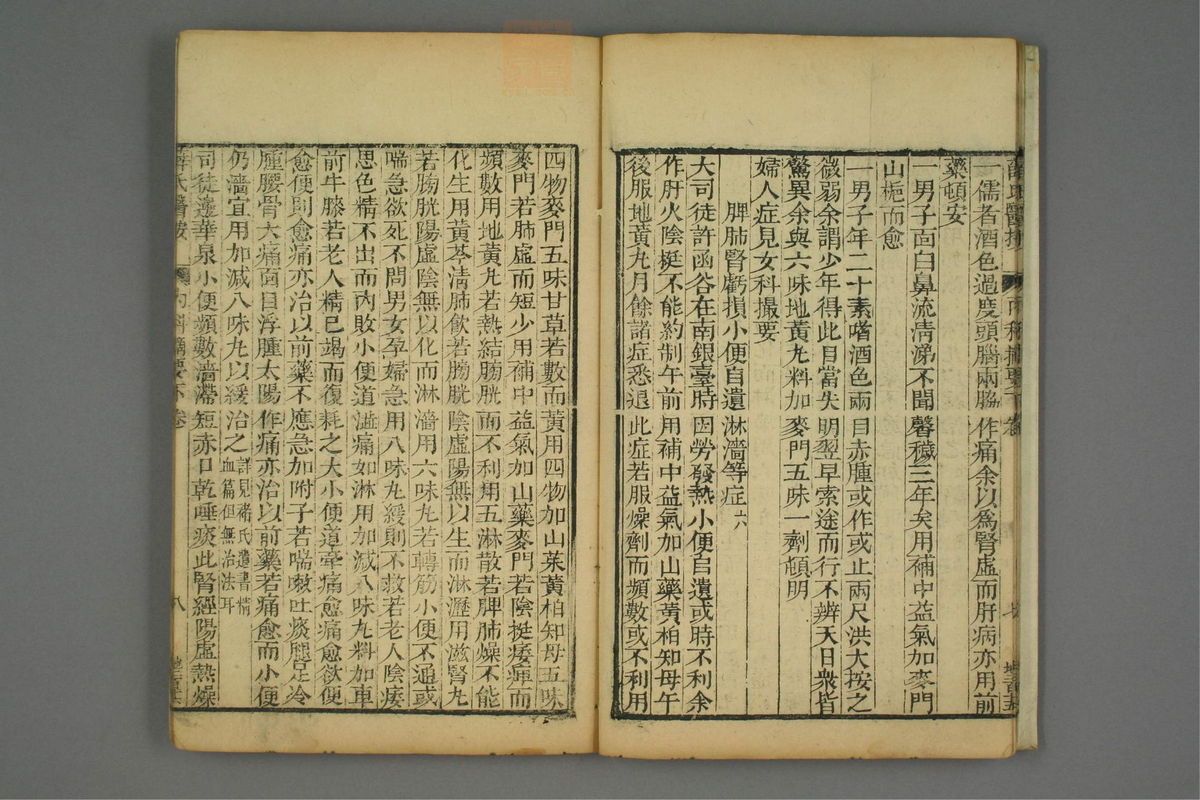 一儒者酒色過度頭腦兩脇作痛余以爲腎虛而肝病亦用前
藥頓安
一男子面白鼻流清涕不聞馨穢三年矣用補中益氣加麥門
山梔而愈
一男子年二十素嗜酒色兩目赤腫或作或止兩尺洪大按之
微弱余謂少年得此目當失明翌早索途而行不辨天日衆皆
驚異余與六味地黃丸料加麥門五味一劑頓明
婦人症見女科撮要
脾肺腎虧損小便自遺淋濇等症六
大司徒許函谷在南銀臺時因勞發熱小便自遺或時不利余
作肝火陰挺不能約制午前用補中益氣加山藥黃柏知母午
後服地黃丸月餘諸症悉退此症若服燥劑而頻數或不利用
四物麥門五味甘草若數而黃用四物加山茱黃柏知母五味
麥門若肺虛而短少用補中益氣加山藥麥門若陰挺痿痺而
頻數用地黃丸若熱結膀胱而不利用五淋散若脾肺燥不能
化生用黃芩清肺飲若膀胱陰虛陽無以生而淋瀝用滋腎丸
若膀胱陽虛陰無以化而淋濇用六味丸若轉筋小便不通或
喘急欲死不問男女孕婦急用八味丸緩則不救若老人陰痿
思色精不出而內敗小便道濇痛如淋用加減八味丸料加車
前牛膝若老人精已竭而復耗之大小便道牽痛愈痛愈欲便
愈便則愈痛亦治以前藥不應急加附子若喘嗽吐痰腿足冷
腫腰骨大痛面目浮腫太陽作痛亦治以前藥若痛愈而小便
仍濇宜用加減八味丸以緩治之詳見褚氏遺書精血篇但無治法耳
司徒邊華泉小便頻數濇滯短赤口乾唾痰此腎經陽虛熱燥
薛氏醫按 內科摘要下卷 八